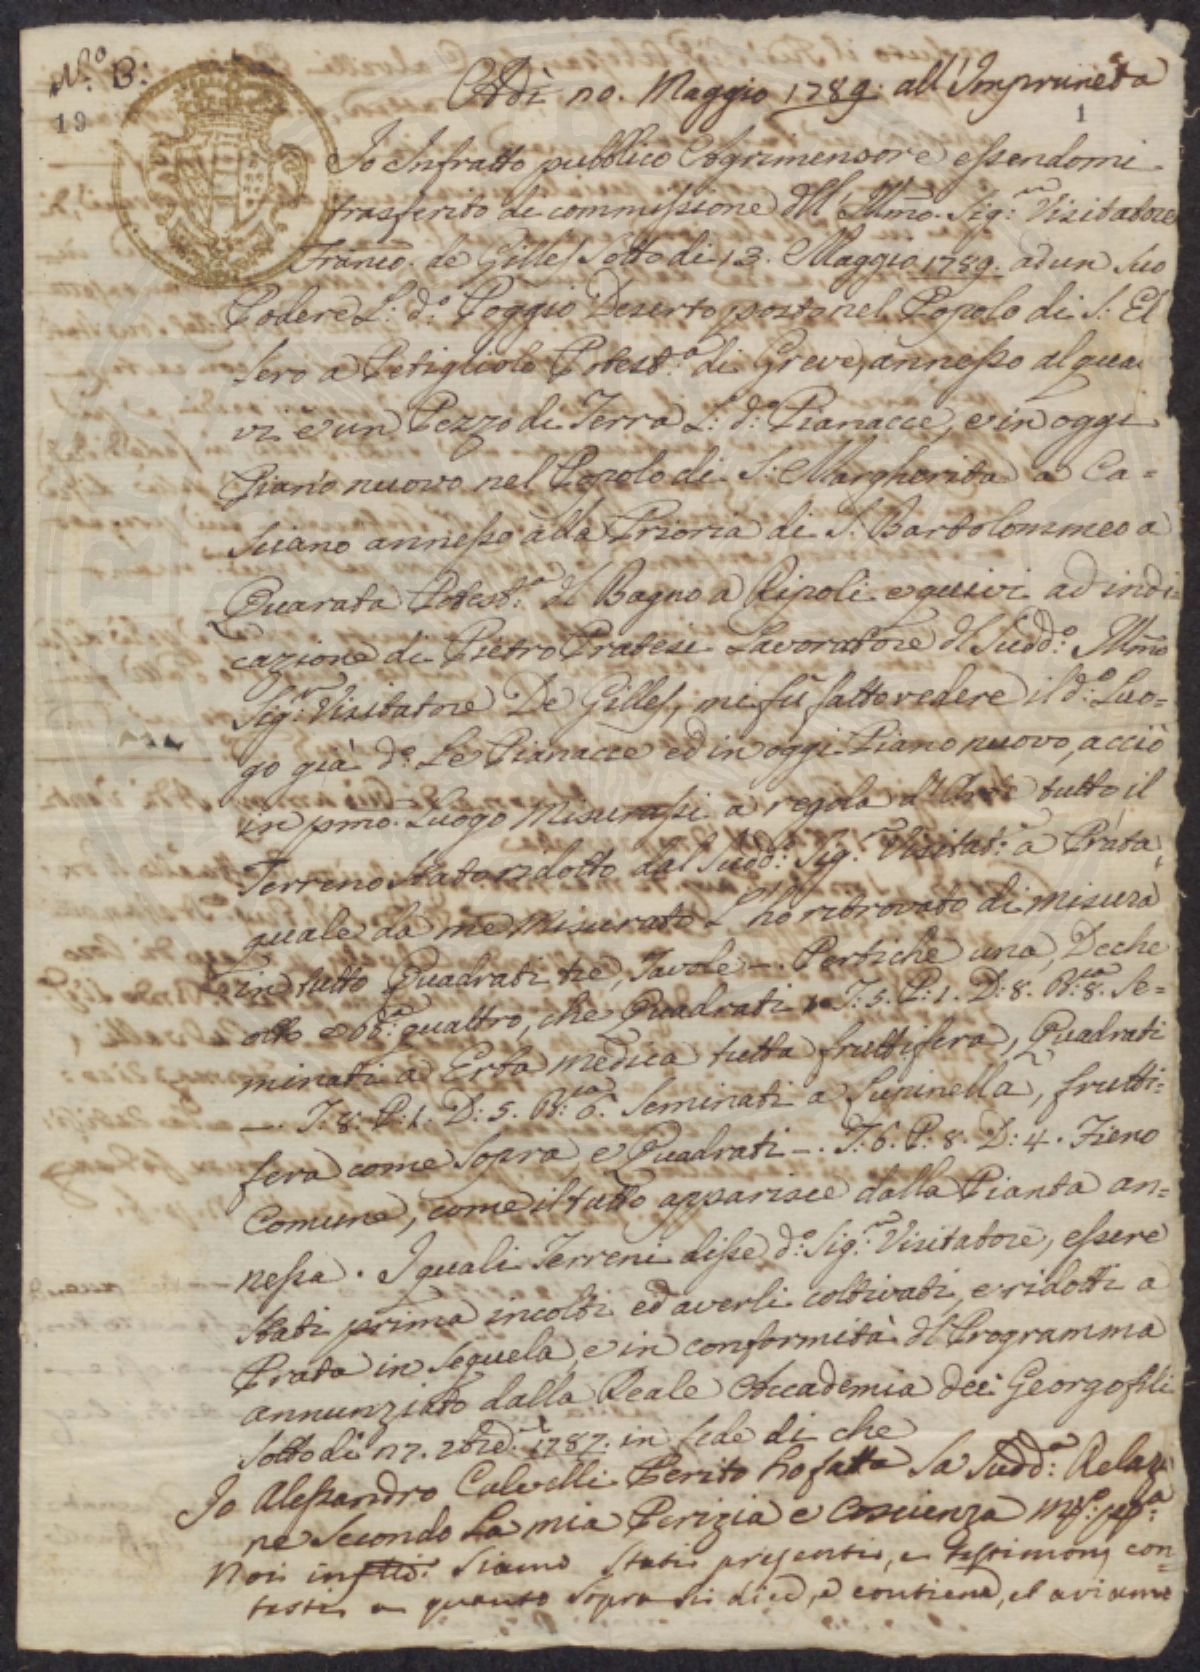 N.º B:
19
Adì 20. Maggio 1789. all'Impruneta
1
Io Infratto pubblico Agrimensore essendomi
trasferito di commissione dell' Illmo. Sig.re Visitatore
Franco. de Gilles sotto di 13. Maggio 1789. ad un suo
Podere L: d.º Poggio Deserto posto nel Popolo di S: El
sero a Petigliolo Potest.a di Greve, annesso al qua
vi è un Pezzo di Terra L: d.º Pianacce, e in oggi
Piano nuovo nel Popolo di S: Margherita a Ca=
sciano annesso alla Prioria di S. Bartolommeo a
Quarata Potest.a del Bagno a Ripoli e quivi ad indi
cazione di Pietro Pratesi Lavoratore del sudd.º Illmo
Sig.r Visitatore De Gilles, mi fù fatto vedere il d.º Luo=
go già d.º Le Pianacce ed in oggi Piano nuovo, acciò
in pmo. Luogo misurassi a regola d'Arte tutto il
Terreno stato ridotto dal sudd.º Sig.re Visitat.e a Prata,
quale da me misurato l'ho ritrovato di misura
in tutto Quadrati tre, Tavole —. Pertiche una, Deche
otto e B.a quattro, che Quadrati T: 5. P: 1. D: 8. B.ia 8. Se=
minati a Erba medica tutta fruttifera, Quadrati
—. T: 8. P: 1. D: 5. B.ia 6. seminati a Lupinella, frutti=
fera come sopra, e Quadrati —. T: 6. P: 8. D: 4. Fieno
Comune, come il tutto apparisce dalla Pianta an=
nessa. I quali Terreni disse d.º Sig.re Visitatore, essere
stati prima incolti ed averli coltivati, e ridotti a
Prata in sequela, e in conformità del Programma
annunziato dalla Reale Accademia dei Georgofili
sotto di 1787. in fede di che
Io Alessandro Calvelli Perito ho fatta la sudd.a Relazi
ne secondo la mia Perizia e coscienza
Noi siamo stati presenti, e testimonj con=
testi a quanto sopra si dice, e contiene, et aviamo